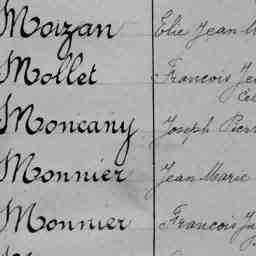 Moizan Elie Jean M
Mollet Francois Je
Cel
Moncany Joseph Pierr
Monnier Jean Marie
Monnier Francois Ju